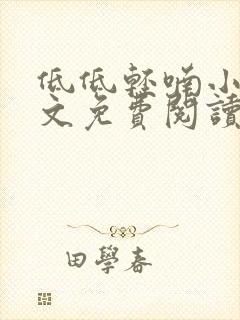 低低輕喃小
文免費閱讀
田學春